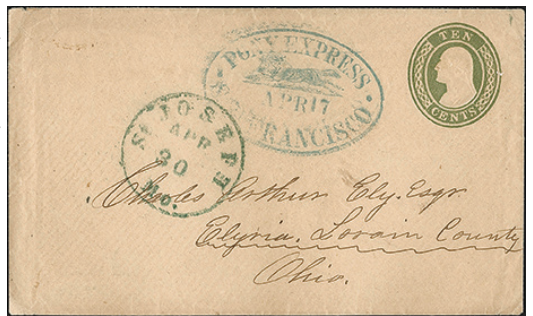 PONY EXPRESS
APR 17
SAN FRANCISCO
TEN
CENTS
ST JOSEPH
APR
30
Mo.
Charles Arthur Ely. Esqr.
Elyria. Lorain County
Ohio.